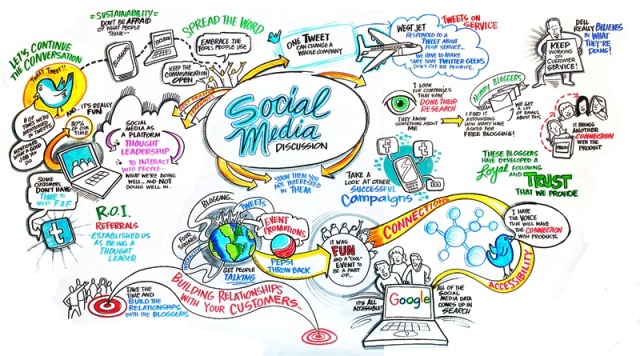 "SUSTAINABILITY"
DON'T BE AFRAID
OF WHAT PEOPLE
THINK
SPREAD THE WORD
EMBRACE THE
TOOLS PEOPLE USE
KEEP THE
COMMUNICATION
OPEN
LET'S CONTINUE
THE CONVERSATION
TWEET TWEET!
NO, IT'S REALLY
FUN
SOCIAL
MEDIA AS
A PLATFORM
THOUGHT
LEADERSHIP
TO INTERACT
WITH PEOPLE
WHAT WE'RE DOING
WELL... AND NOT
DOING WELL IN...
80% OF
OUR TIME
SOME
CUSTOMERS
DON'T HAVE
TIME TO
MEET F2F
t
R.O.I.
REFERRALS
ESTABLISHED US
AS BEING A
THOUGHT
LEADER
ONE TWEET
CAN CHANGE A
WHOLE COMPANY
WEST JET
RESPONDED TO A
TWEET ABOUT
POOR SERVICE...
SURE THAT TWITTER GEEKS
TWEETS ON
SERVICE
DELL
REALLY BELIEVES
IN WHAT
THEY'RE
DOING!
KEEP
WORKING
ON
CUSTOMER
SERVICE!
Social
Media
DISCUSSION
I LOOK
THE COMPANIES
THAT HAVE
DONE THEIR
RESEARCH
THEY KNOW
SOMETHING ABOUT
ME
MOMMY BLOGGERS
I FIND IT
ASTOUNDING
HOW MANY HAVE
ASKED FOR
FREE BLOGGING!
WE GET
A LOT
OF EMAILS
ABOUT THIS
IT BRINGS
ANOTHER
CONNECTION
WITH THE
PRODUCT
SHOW THEM YOU
ARE INTERESTED
IN THEM
TAKE A
LOOK AT OTHER
SUCCESSFUL
Campaigns
THESE BLOGGERS
HAVE DEVELOPED A
Loyal FOLLOWING
AND TRUST
THAT WE PROVIDE
BLOGGING...
TWEETS
GET PEOPLE
TALKING
EVENT
PROMOTIONS
PEPSI
THROW BACK
IT WAS
FUN
AND A "COOL"
EVENT TO
BE A PART
OF...
CONNECTIONS
ACCESSIBILITY
I HAVE
THE VOICE
THAT WILL MAKE
THE CONNECTION
WITH PRODUCTS
TAKE THE
TIME AND
BUILD THE
RELATIONSHIPS
WITH THE BLOGGERS
BUILDING RELATIONSHIPS
WITH YOUR CUSTOMERS...
IT'S ALL
ACCESSIBLE
Google
ALL OF THE
SOCIAL
MEDIA DATA
COMES UP IN
SEARCH